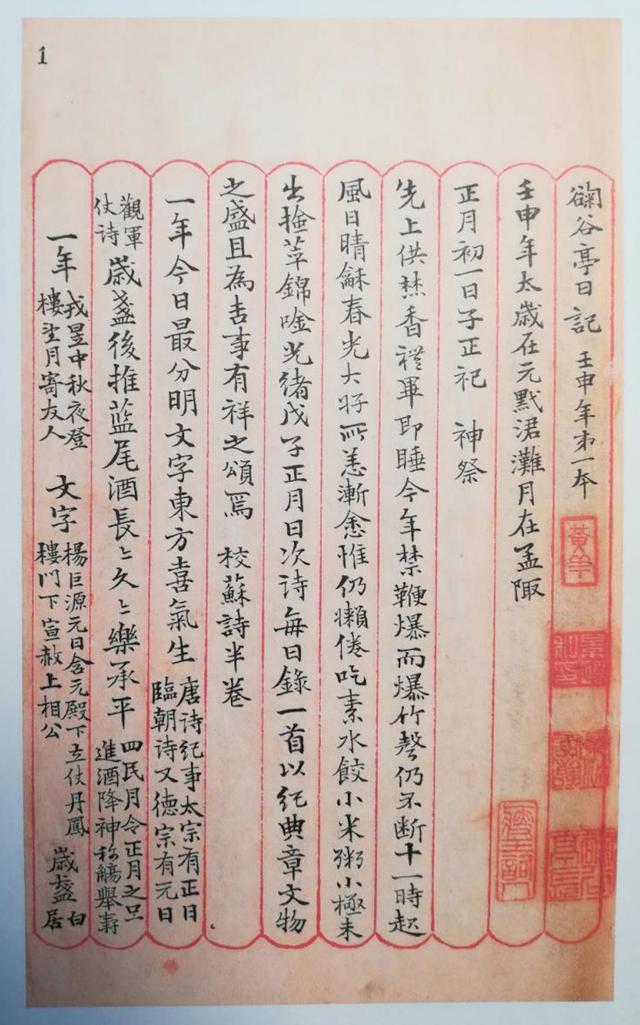 1
谷亭日記 壬申年苐一本
黃羊
壬申年太歲在元默涒灘月在孟陬
正月初一日子正祀 神祭
先上供焚香禮畢即睡今年禁鞭爆而爆竹聲仍不斷十一時起
風日晴龢春光大好所恙漸愈惟仍懶倦吃素水餃小米粥小極未
出撿苹錦唫光緒戊子正月日次诗每日錄一首以紀典章文物
之盛且為吉事有祥之頌焉 校蘇詩半卷
一年今日最分明文字東方喜氣生 唐诗纪事太宗有正日臨朝诗又德宗有元日
觀軍仗诗 歲盞後推蓝尾酒長〻久〻樂承平 四民月令正月之旦進酒降神称觴舉壽
一年 戎昱中秋夜澄樓望月寄友人 文字 楊巨源元日含元殿下立仗丹鳳樓門下宣赦上相公 歲盞 白居